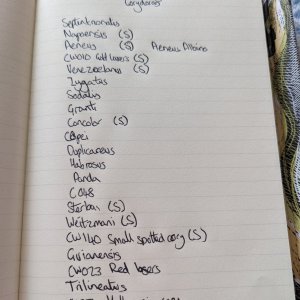 Corydoras
Septentrionalis
Napoensis (S)
Aeneus (S) Aeneus Albino
CW010 Gold lasers (S)
Venezuelanus (S)
Zygatus
Sodalis
Granti
Concolor (S)
Copei
Duplicareus
Habrosus
Panda
C048
Sterbai (S)
Weitzmani (S)
CW140 Small spotted cory (S)
Guianensis
CW023 Red lasers
Trilineatus